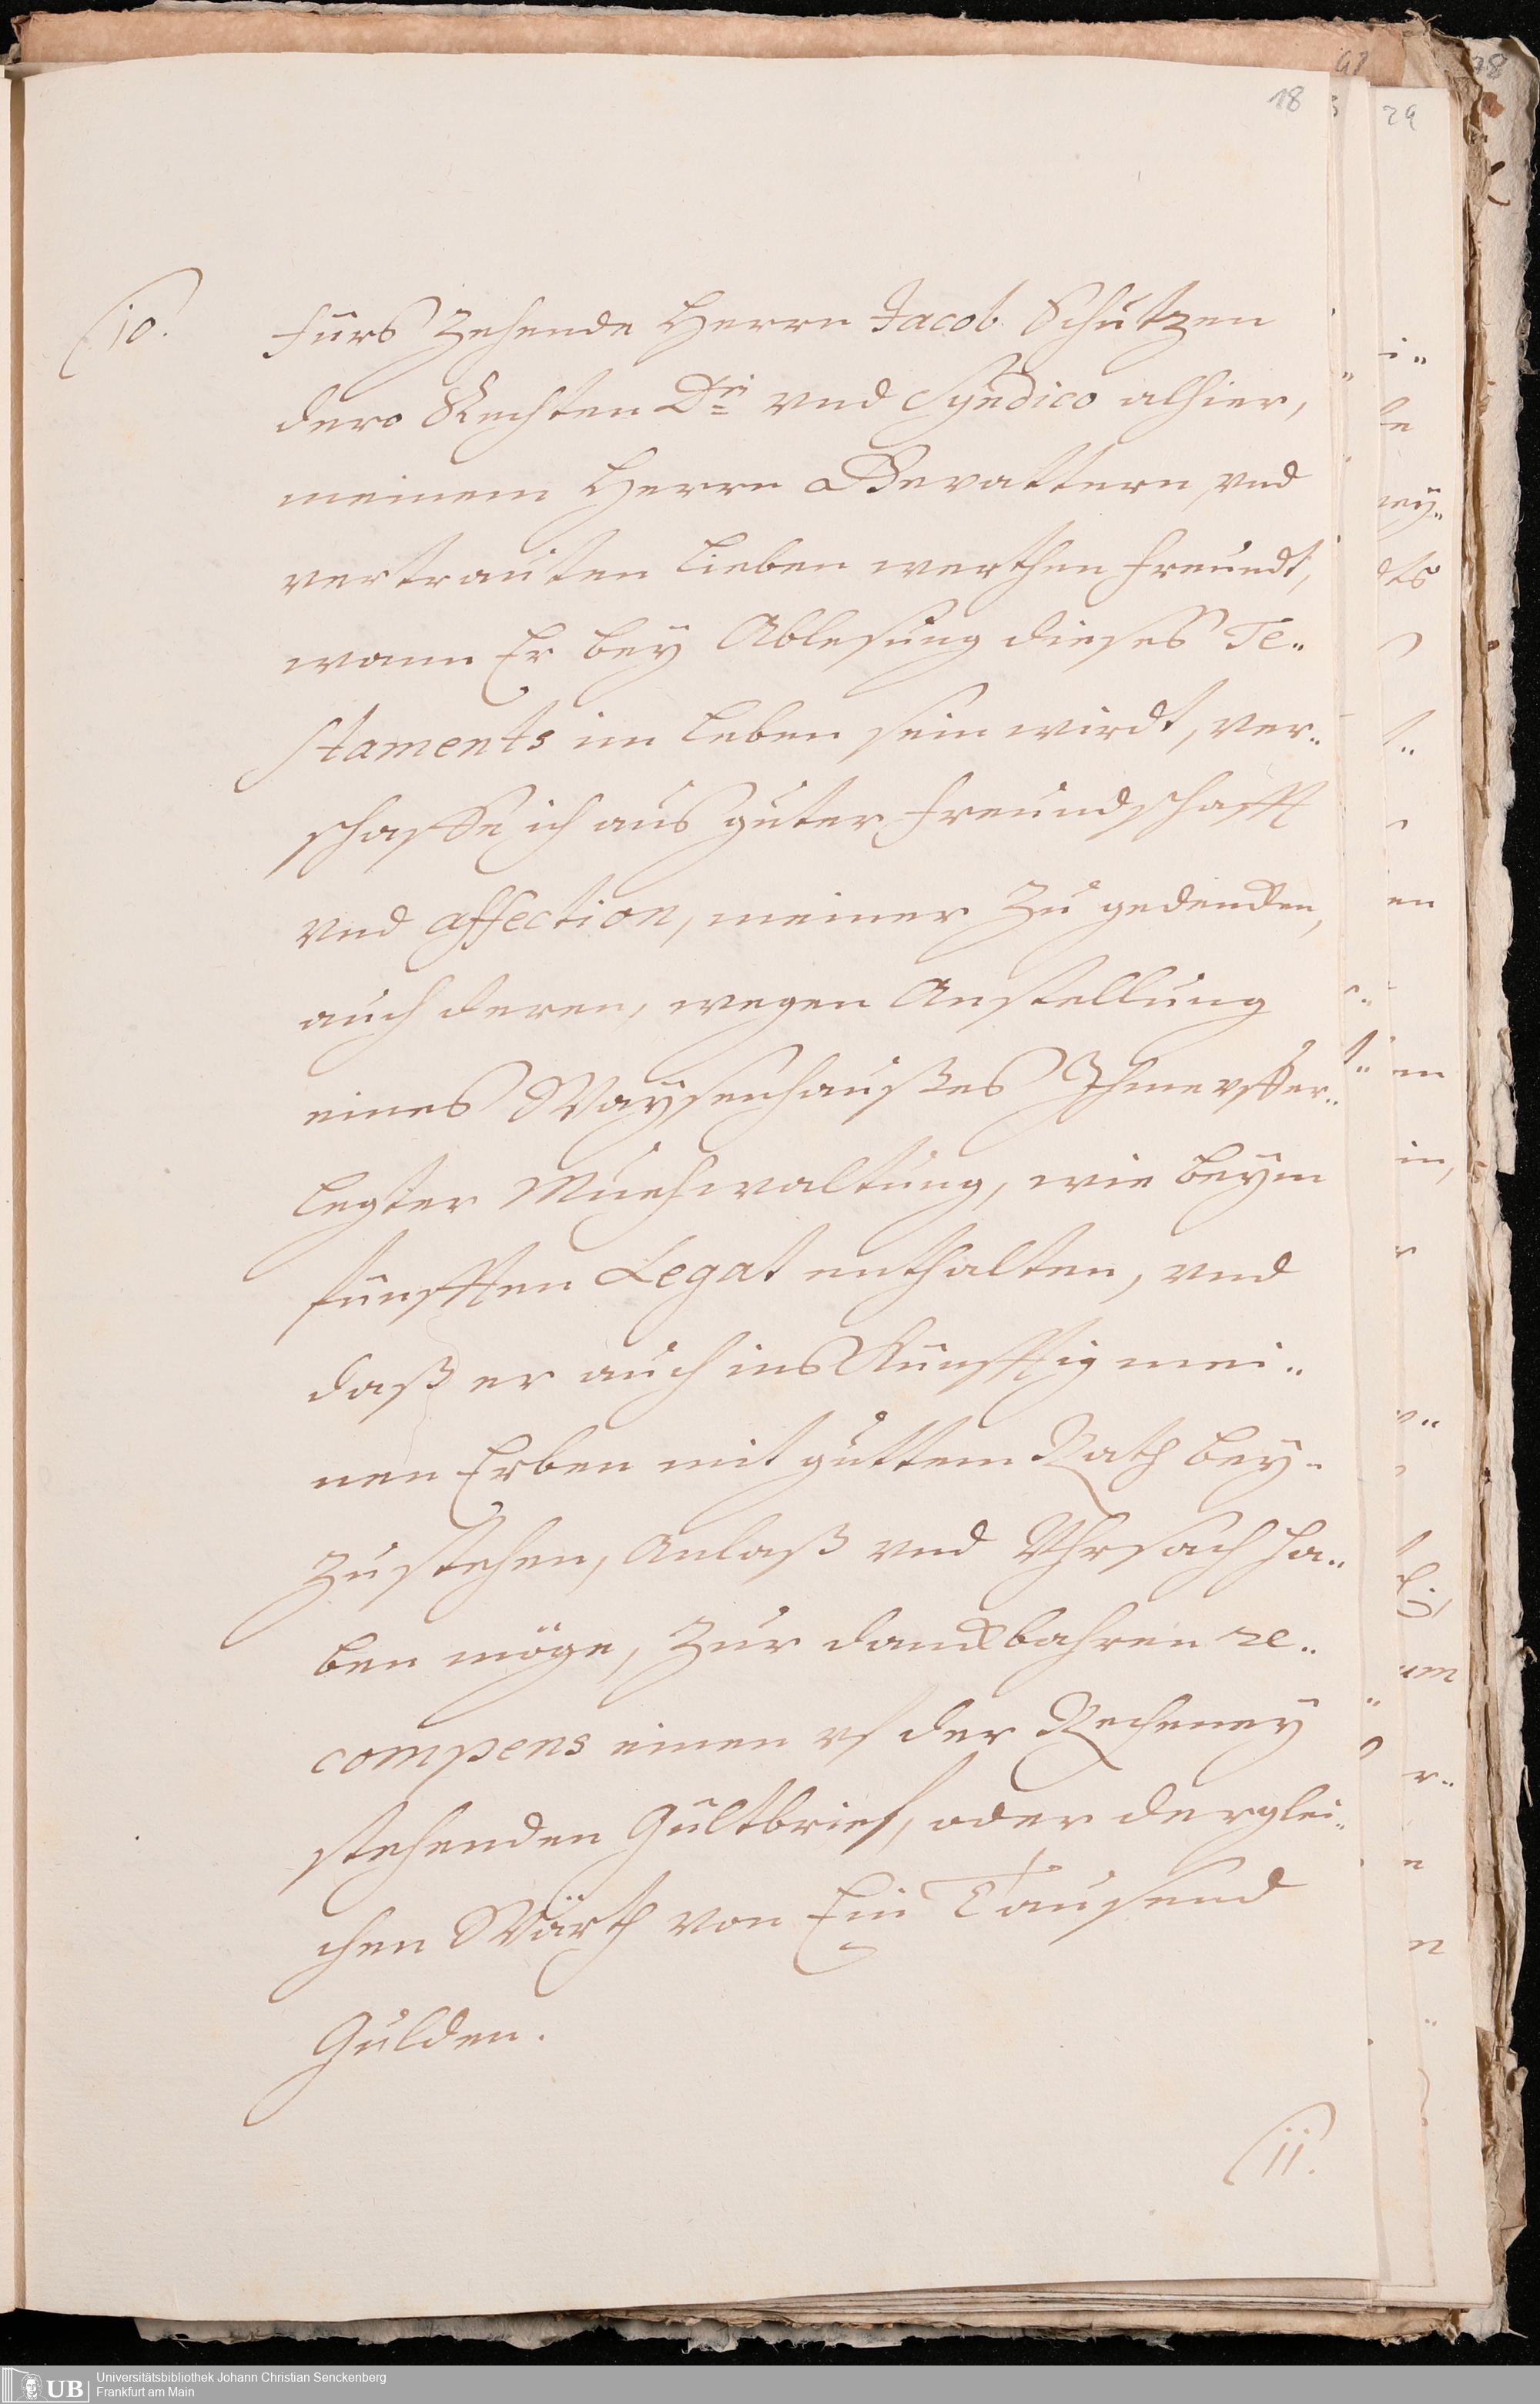 18
10.
fürs zehende Herrn Jacob Schützen
dero Rechten Dri und Syndico alhier,
meinem Herrn Gevattern und
vertrauten lieben werthen freundt,
wann Er bey Ablesung dieses Te-
staments im leben sein wirdt, ver-
schaffe ich aus guter freundschafft
und affection, meiner zu gedencken,
auch deren, wegen Anstellung
eines Waysenhaußes Ihme uffer-
legter Muehwaltung, wie beym
fünfften Legat enthalten, und
daß er auch ins Künfftig mei-
nen Erben mit guttem Rath bey-
zustehen, Anlaß und Uhrsach ha-
ben möge, zur danckbahren re-
compens einen uf der Recheney
stehenden Gültbrief, oder derglei-
chen Wärth von Ein Tausend
Gulden.
11.
29
Universitätsbibliothek Johann Christian Senckenberg
Frankfurt am Main
UB